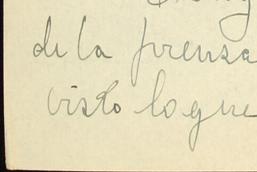 de la prensa
visto lo que